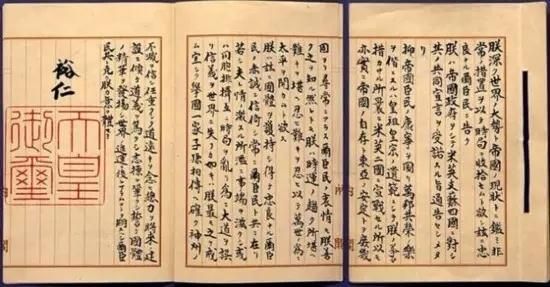 朕深ク世界ノ大勢ト帝國ノ現狀トニ鑑ミ非
常ノ措置ヲ以テ時局ヲ收拾セムト欲シ茲ニ忠
良ナル爾臣民ニ告ク
朕ハ帝國政府ヲシテ米英支蘇四國ニ對シ
其ノ共同宣言ヲ受諾スル旨通告セシメタ
リ
抑々帝國臣民ノ康寧ヲ圖リ萬邦共榮ノ樂
ヲ偕ニスルハ皇祖皇宗ノ遺範ニシテ朕ノ拳々
措カサル所曩ニ米英二國ニ宣戰セル所以モ
亦實ニ帝國ノ自存ト東亞ノ安定トヲ庶幾
固ヨリ尋常ニアラス爾臣民ノ衷情モ朕善
ク之ヲ知ル然レトモ朕ハ時運ノ趨ク所堪ヘ
難キヲ堪ヘ忍ヒ難キヲ忍ヒ以テ萬世ノ爲ニ
太平ヲ開カムト欲ス
朕ハ茲ニ國體ヲ護持シ得テ忠良ナル爾臣
民ノ赤誠ニ信倚シ常ニ爾臣民ト共ニ在リ
若シ夫レ情ノ激スル所濫ニ事端ヲ滋クシ或
ハ同胞排擠互ニ時局ヲ亂リ爲ニ大道ヲ誤
リ信義ヲ世界ニ失フカ如キハ朕最モ之ヲ戒
ム宜シク擧國一家子孫相傳ヘ確ク神州
不滅ヲ信シ任重クシテ道遠キヲ念ヒ總力ヲ將來ノ建
設ニ傾ケ道義ヲ篤クシ志操ヲ鞏クシ誓テ國體
ノ精華ヲ發揚シ世界ノ進運ニ後レサラムコトヲ期スヘシ爾臣
民其レ克ク朕カ意ヲ體セヨ
裕仁
天皇
御璽